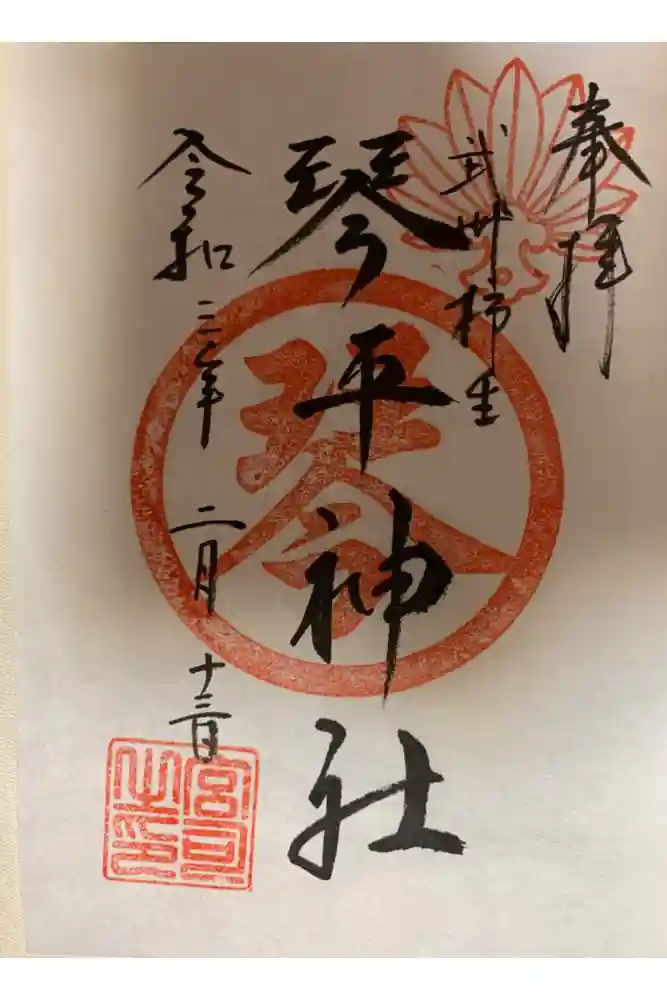 奉拝
武州柿生
琴平神社
琴
令和三年二月十三日
宮司之印